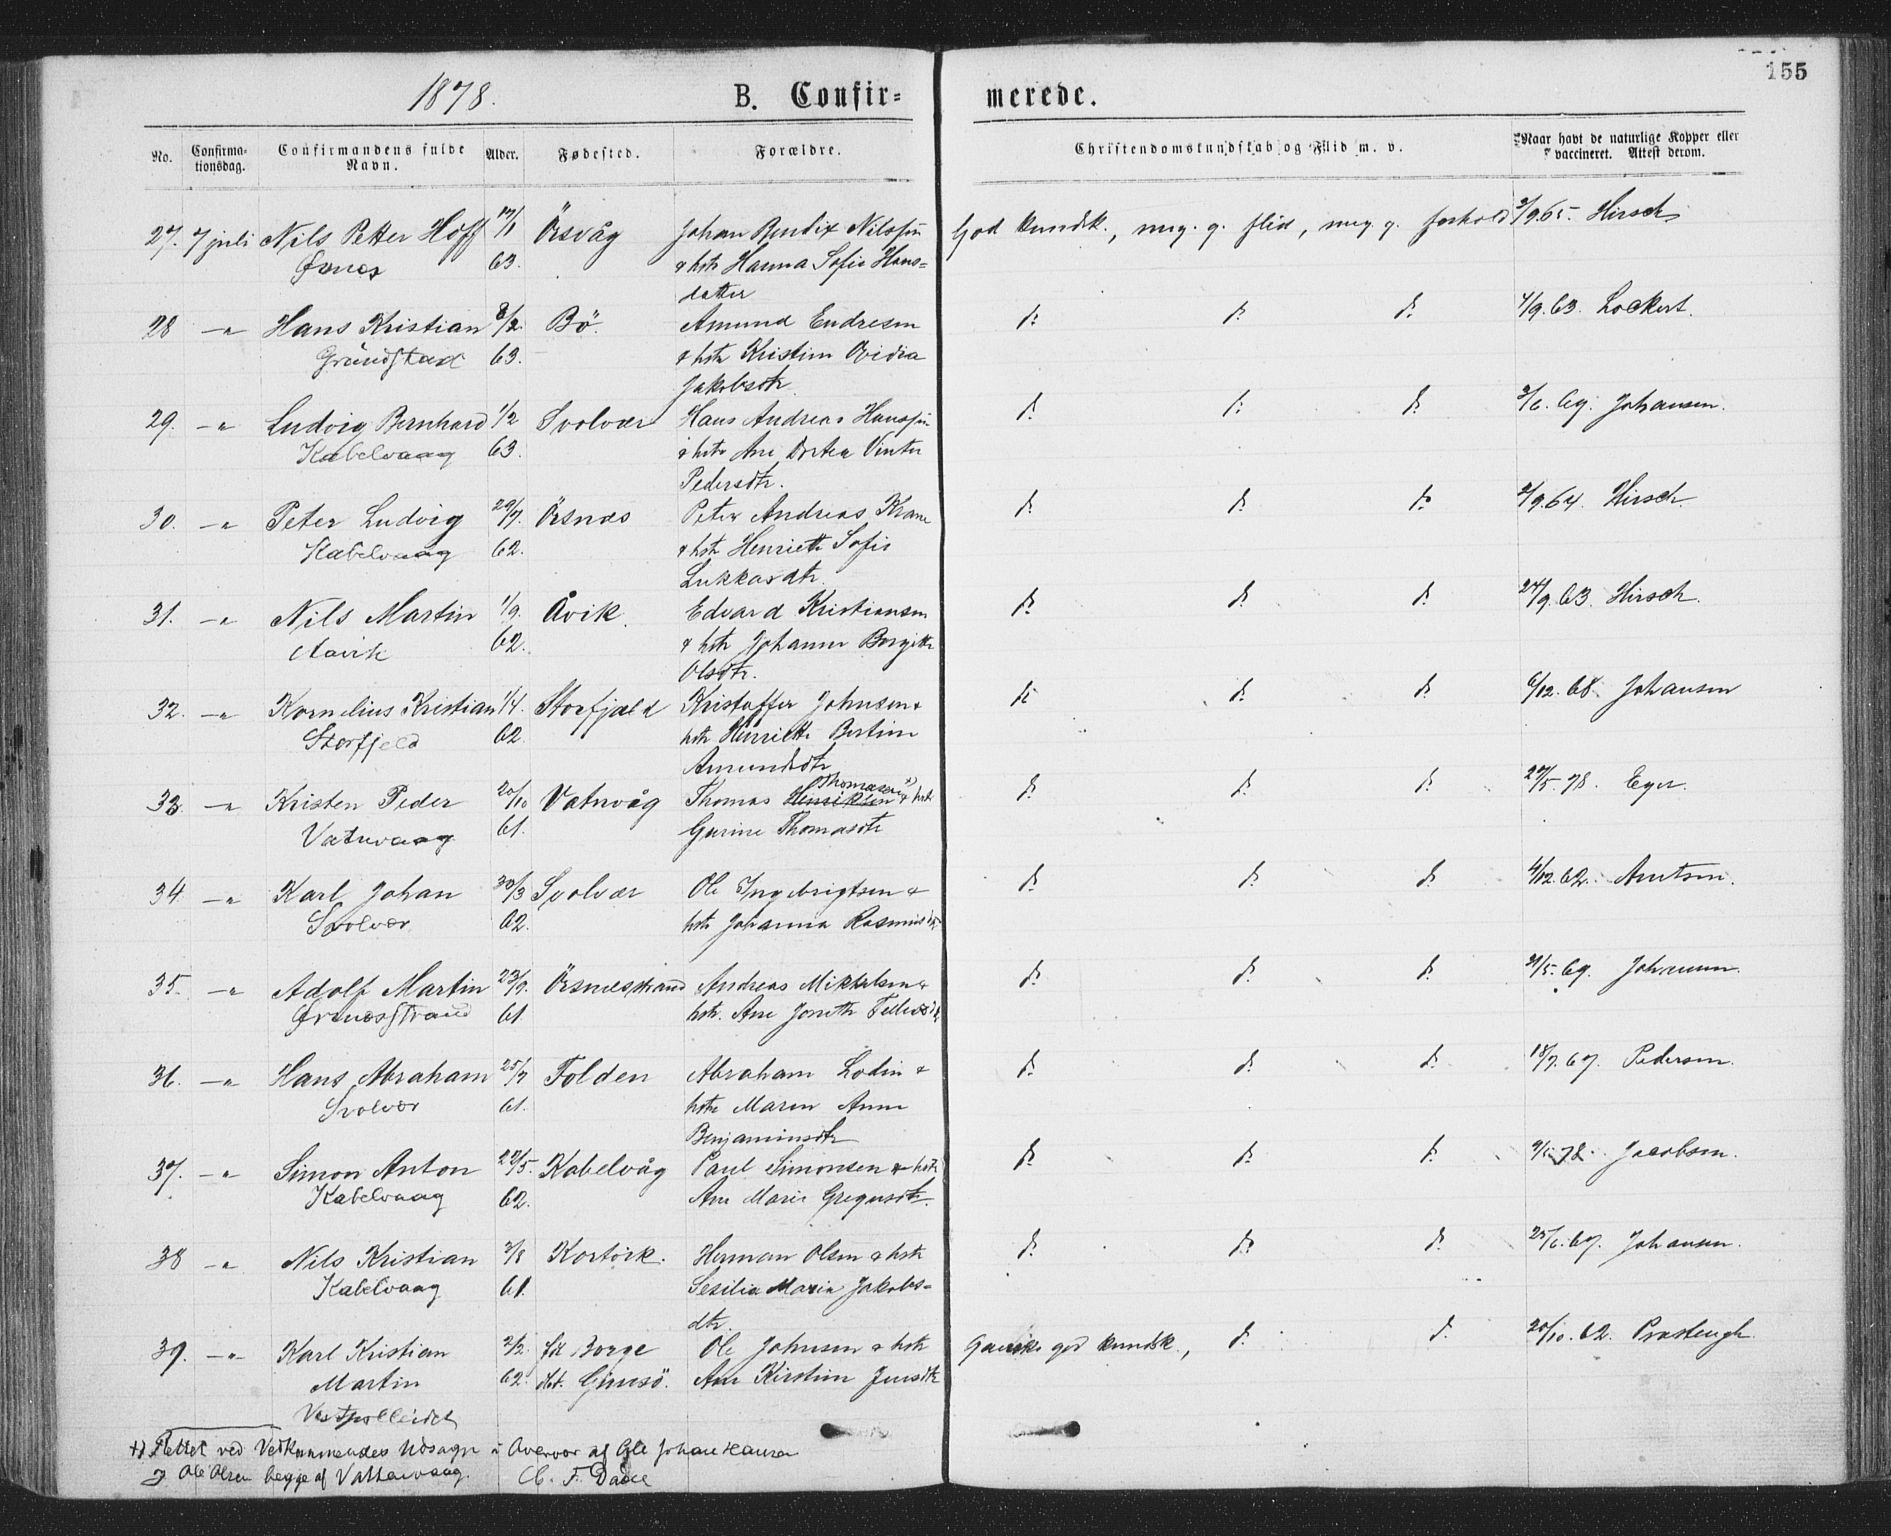 155
1878. B. Confirmerede.
No. Confirmationsdag. Confirmandens fulde Navn. Alder. Fødested. Forældre. Christendomskundskab og Flid m. v. Naar havt de naturlige Kopper eller vaccineret. Attest derom.
27. 7 juli Nils Petter Hoff 17/1 Örsvåg Johan Bendix Nilssen God kundsk., meg. g. flid, meg. g. forhold 2/9.65. Hirsch
Ørsnes 63. & hstr Hanna Sofie Hans=
datter
28 -"- Hans Kristian 8/2 Bö. Amund Endresen d: d: d: 4/9.63. Lockert.
Grundstad 63. & hstr Kristine Ovidia
Jakobsdtr.
29. -"- Ludvig Bernhard 1/2 Svolvær Hans Andreas Hanssen d: d: d: 2/6.69. Johansen.
Kabelvaag 63. & hstr Ane Dortea Vinter
Pedersdtr.
30. -"- Peter Ludvig 29/7. Örsnæs Peter Andreas Krane d: d: d: 2/9.64. Hirsch.
Kabelvaag 62. & hstr Henriette Sofie
Lukkasdtr.
31. -"- Nils Martin 1/9. Åvik. Edvard Kristiansen d: d: d: 24/9.63. Hirsch.
Aavik 62. & hstr Johanne Borgitte
Olsdtr.
32. -"- Kornelius Kristian 1/4. Storfjeld Kristoffer Johnsen & d: d: d: 6/12.68. Johansen
Storfjeld 62. hstr Henriette Bertine
Amundsdtr
Thomasen +)
33 -"- Kristen Peder 20/10 Vatnvåg Thomas Henriksen & hstr d: d: d: 27/5.78. Eger.
Vatnvaag 61. Gurine Thomasdtr
34 -"- Karl Johan 30/3 Svolvær Ole Ingebrigtsen & d: d: d: 4/12.62. Arntsen.
Svolvær 62. hstr Johanna Rasmusdtr
35. -"- Adolf Martin 23/9. Örsnæsstrand Andreas Mikkelsen & d: d: d: 21/5.69. Johansen.
Ørsnesstrand 61. hstr. Ane Jonette
36. -"- Hans Abraham 25/7 Folden Abraham Lodin & d: d: d: 18/7.67. Pedersen.
Svolvær 61. hstr Maren Anne
Benjaminsdtr
37. -"- Simon Anton 22/5. Kabelvåg Paul Simonsen & hstr d: d: d: 78. Jacobsen.
Kabelvaag 62. Ane Marie Gregusdtr.
38 -"- Nils Kristian 2/8 Herman Olsen & hstr d: d: d: 25/6.67. Johansen.
Kabelvaag 61. Sesilia Maria Jakobs=
dtr.
39. -"- Karl Kristian 2/2 fd. Borge Ole Johnsen & hstr Ganske god kundsk., d: d: 20/10.62.
Martin 62. dbt. Gimsö. Ane Kirstine Jensdtr
Vestpolleidet
+) Rettet ved Vedkommendes Udsagn i Overvær af Ole Johan Hansen
og Ole Olsen begge af Vattervaag. Ch. F. Daae